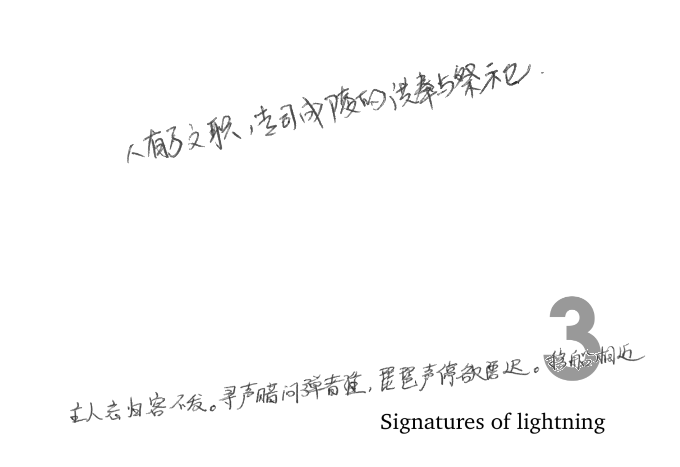 人有了文职，专司成陵的供奉与祭祀.
3
主人忘归客不发。寻声暗问弹者谁，琵琶声停欲语迟。移船相近
Signatures of lightning